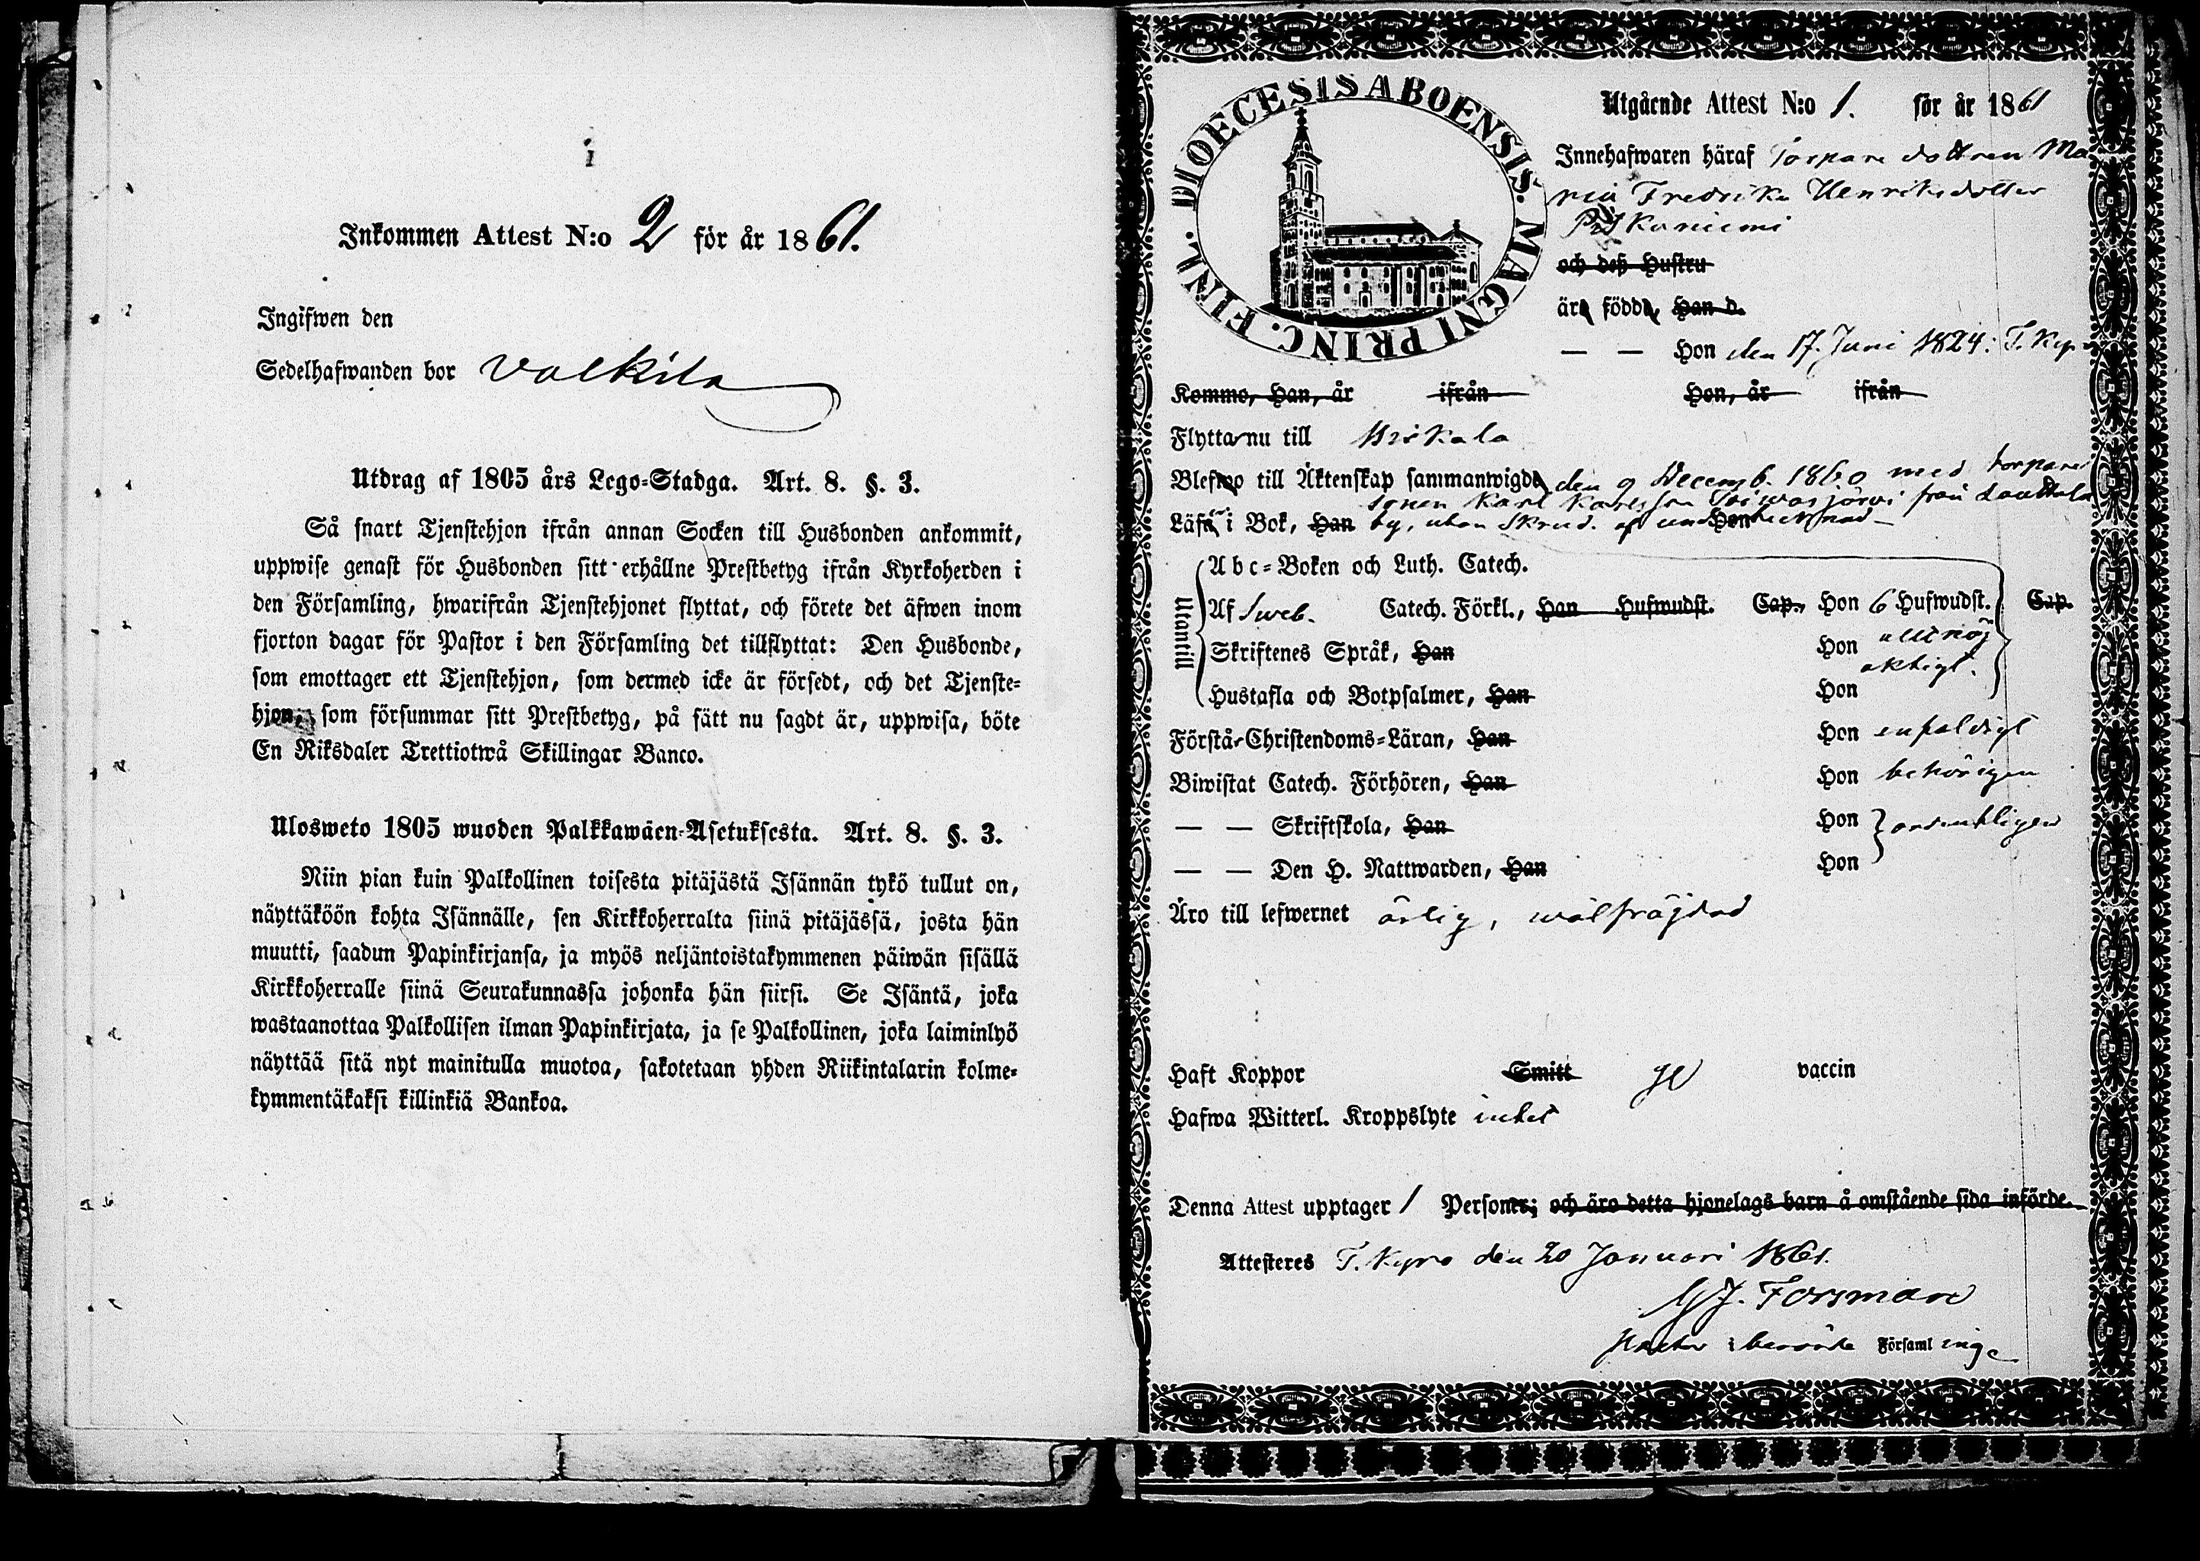 Inkommen Attest N:o 2 för år 1861.
Ingifwen den
Sedelhafwanden bor Valkila
Utdrag af 1805 års Lego-Stadga. Art. 8. §. 3.
Så snart Tjenstehjon ifrån annan Socken till Husbonden ankommit,
uppwise genast för Husbonden sitt erhållne Prestbetyg ifrån Kyrkoherden i
den Församling, hwarifrån Tjenstehjonet flyttat, och förete det äfwen inom
fjorton dagar för Pastor i den Församling det tillflyttat: Den Husbonde,
som emottager ett Tjenstehjon, som dermed icke är försedt, och det Tjenste-
hjon, som försummar sitt Prestbetyg, på sätt nu sagdt är, uppwisa, böte
En Riksdaler Trettiotwå Skillingar Banco.
Ulosweto 1805 wuoden Palkkawäen-Asetuksesta. Art. 8. §. 3.
Niin pian kuin Palkollinen toisesta pitäjästä Isännän tykö tullut on,
näyttäköön kohta Isännälle, sen Kirkkoherralta siinä pitäjässä, josta hän
muutti, saadun Papinkirjansa, ja myös neljäntoistakymmenen päiwän sisällä
Kirkkoherralle siinä Seurakunnassa johonka hän siirsi. Se Isäntä, joka
wastaanottaa Palkollisen ilman Papinkirjata, ja se Palkollinen, joka laiminlyö
näyttää sitä nyt mainitulla muotoa, sakotetaan yhden Riikintalarin kolme-
kymmentäkaksi killinkiä Bankoa.
DIOECESIS ABOENSIS. MAGNI PRINC. FINL.
Utgående Attest N:o 1. för år 1861
Innehafwaren häraf Torpare dottren Ma
ria Fredrika Henriksdotter
och deß Hustru
äro födde, Han d.
— — Hon den 17. Juni 1824: T. Kyro
Kommo, Han, år ifrån Hon, år ifrån
Flytta nu till Urikala
Blefwo till Äktenskap sammanwigde den 9 Decemb. 1860 med torpare
sonen Karl Karlsson från
Läsa i Bok, Han by, utan Hon
Utantill
Abc-Boken och Luth. Catech.
Af Sweb. Catech. Förkl., Han Hufwudst. Cap., Hon 6 Hufwudst. Cap.
Skriftenes Språk, Han Hon
Hustafla och Botpsalmer, Han Hon
Förstå Christendoms-Läran, Han Hon enfaldigt
Biwistat Catech. Förhören, Han Hon behörigen
— — Skriftskola, Han Hon ordentligen
— — Den H. Nattwarden, Han Hon
Äro till lefwernet ärlig, wälfräjdad
Haft Koppor Smitt vaccin
Hafwa Witterl. Kroppslyte intet
Denna Attest upptager 1 Personer; och äro detta hjonelags barn å omstående sida införde.
Attesteres T. Kyro den 20 Januari 1861.
Forsman
Pastor i berörde Församlinge